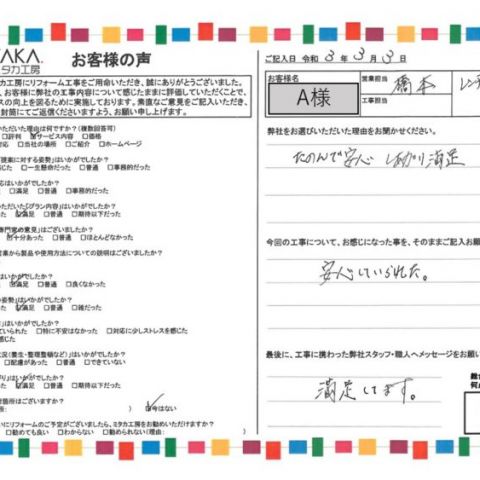 TAKA.
タカ工房
お客様の声
タカ工房にリフォーム工事をご用命いただき、誠にありがとうございました。
、お客様に弊社の工事内容について感じたままに評価していただくことで、
スの向上を図るために実施しております。素直なご意見をご記入いただき、
封筒にてご返信くださいますよう、お願い申し上げます。
いただいた理由は何ですか?(複数回答可)
□評判 □サービス内容 □価格
対応 □当社の場所 □ご紹介 □ホームページ
「提案に対する姿勢」はいかがでしたか?
じた □一生懸命だった □普通 □事務的だった
応はいかがでしたか?
□満足 □普通 □事務的だった
いただいた「プラン内容」はいかがでしたか?
□満足 □普通 □期待以下だった
専門家の意見」はございましたか?
□十分あった □普通 □ほとんどなかった
営業から製品や使用方法についての説明はございましたか?
はいかがでしたか?
□満足 □普通 □良くなかった
の姿勢」はいかがでしたか?
□満足 □普通 □雑だった
」はいかがでしたか?
ていられた □特に不安はなかった □対応に少しストレスを感じた
に感じた
状況(養生・整理整頓など)」はいかがでしたか?
□配慮があった □普通 □できていない
がり」はいかがでしたか?
□満足 □普通 □期待以下だった
箇所はございますか?
所: ) □今はない
いにリフォームのご予定がございましたら、ミタカ工房をお勧めいただけますか?
□勧めても良い □わからない □勧められない(理由: )
ご記入日 令和 3 年 3 月 3 日
お客様名
A様
営業担当 橋本
工事担当
レンテ
弊社をお選びいただいた理由をお聞かせください。
たのんで安心 しあがり満足
今回の工事について、お感じになった事を、そのままご記入お願
安心していられた。
最後に、工事に携わった弊社スタッフ・職人へメッセージをお願い
満足してます。
総
何点